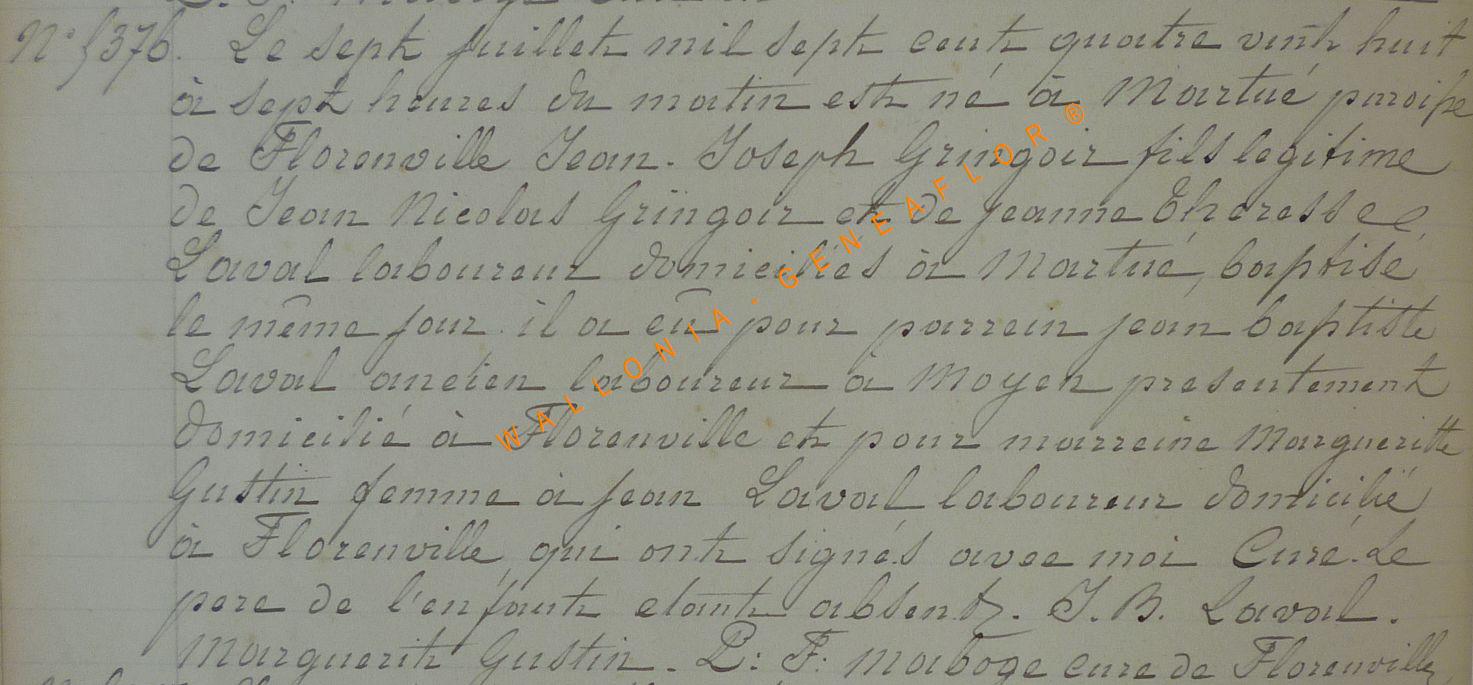 N° 1376. Le sept juillet mil sept cent quatre vint huit
à sept heures du matin est né à Martué paroisse
de Florenville Jean-Joseph Gringoir fils legitime
de Jean Nicolas Gringoir et de jeanne Theresse
Laval laboureur domiciliés à Martué, baptisé
le même jour il a eû pour parrein jean baptiste
Laval ancien laboureur à Moyen presentement
domicilié à Florenville et pour marreine Margueritte
Gustin femme à jean Laval laboureur domicilié
à Florenville, qui ont signés avec moi Curé. Le
pere de l'enfant etant absent. J. B. Laval.
Marguerit Gustin. P: F: Maboge cure de Florenville
WALLONIA-GENEAFLOR®